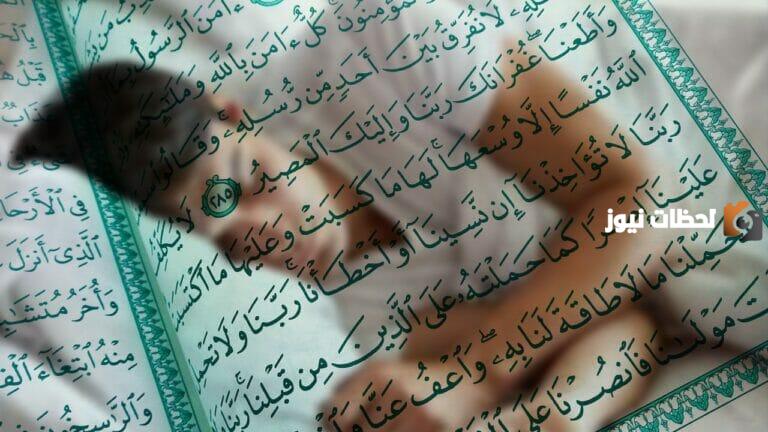 ءَامَنَ ٱلرَّسُولُ بِمَا
كُلٌّ ءَامَنَ بِٱللَّهِ وَمَلَٰٓئِكَتِهِۦ
لَا نُفَرِّقُ بَيْنَ أَحَدٍ مِّن رُّسُلِهِۦ ۚ وَقَالُوا۟
وَأَطَعْنَا ۖ غُفْرَانَكَ رَبَّنَا وَإِلَيْكَ ٱلْمَصِيرُ ٢٨٥ لَا
ٱللَّهُ نَفْسًا إِلَّا وُسْعَهَا ۚ لَهَا مَا كَسَبَتْ وَعَلَيْهَا مَا
رَبَّنَا لَا تُؤَاخِذْنَآ إِن نَّسِينَآ أَوْ أَخْطَأْنَا ۚ رَبَّنَا وَلَا
عَلَيْنَآ إِصْرًا كَمَا حَمَلْتَهُۥ عَلَى ٱلَّذِينَ مِن قَبْلِنَا ۚ رَبَّنَا
تُحَمِّلْنَا مَا لَا طَاقَةَ لَنَا بِهِۦ ۖ وَٱعْفُ عَنَّا
مَوْلَىٰنَا فَٱنصُرْنَا عَلَى
قَبْلُ
عَذَابٌ
فِى ٱلْأَرْحَا
ٱلَّذِىٓ أَنزَلَ
وَأُخَرُ
مِنْهُ ٱبْتِغَآءَ
وَٱلرَّٰسِخُونَ
لحظات نيوز